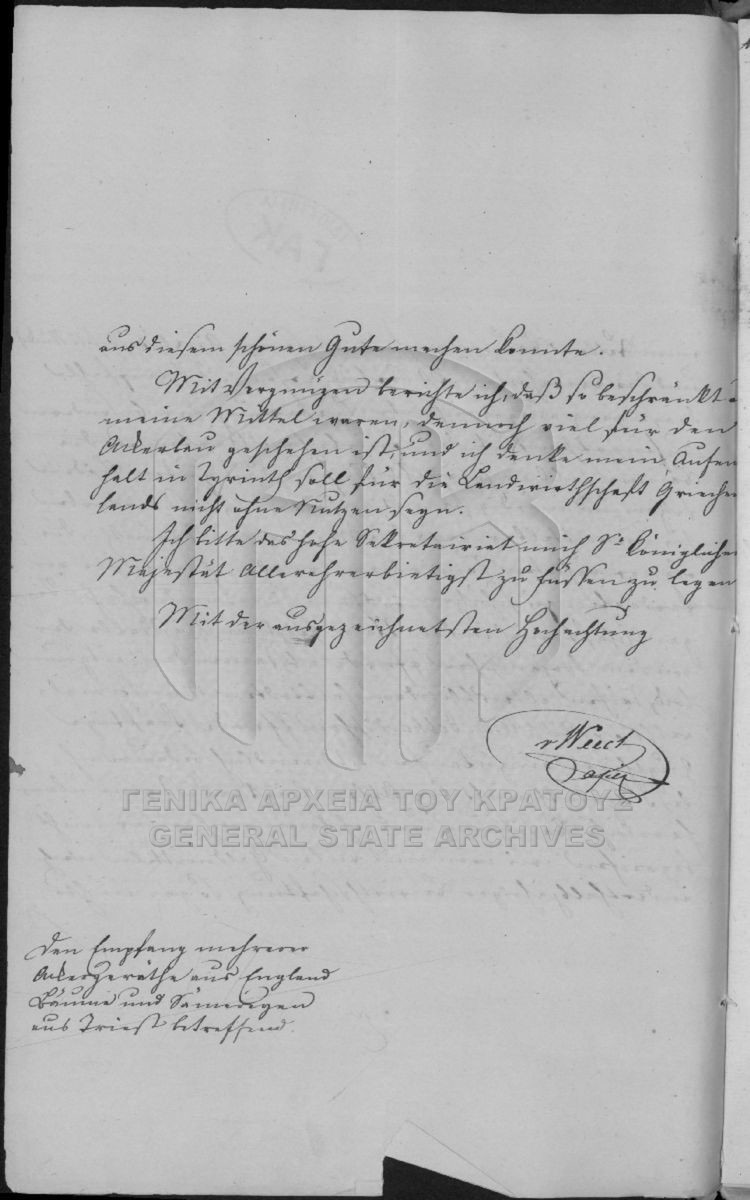 aus diesem schönen Gute machen konnte.
Mit Vergnügen berichte ich, daß so beschränkt
meine Mittel waren, dennoch viel für den
Ackerbau geschehen ist, und ich denke mein Aufen
halt in Tyrinth soll für die Landwirthschaft Griechen
lands nicht ohne Nutzen seyn.
Ich bitte das hohe Sekretairiat mich Sr Königlichen
Majestät allerehrerbietigst zu Füssen zu legen
Mit der ausgezeichnetsten Hochachtung
v Weech
ΓΕΝΙΚΑ ΑΡΧΕΙΑ ΤΟΥ ΚΡΑΤΟΥΣ
GENERAL STATE ARCHIVES
Den Empfang mehrerer
Ackergeräthe aus England
Bäume und Sämereyen
aus Triest betreffend.